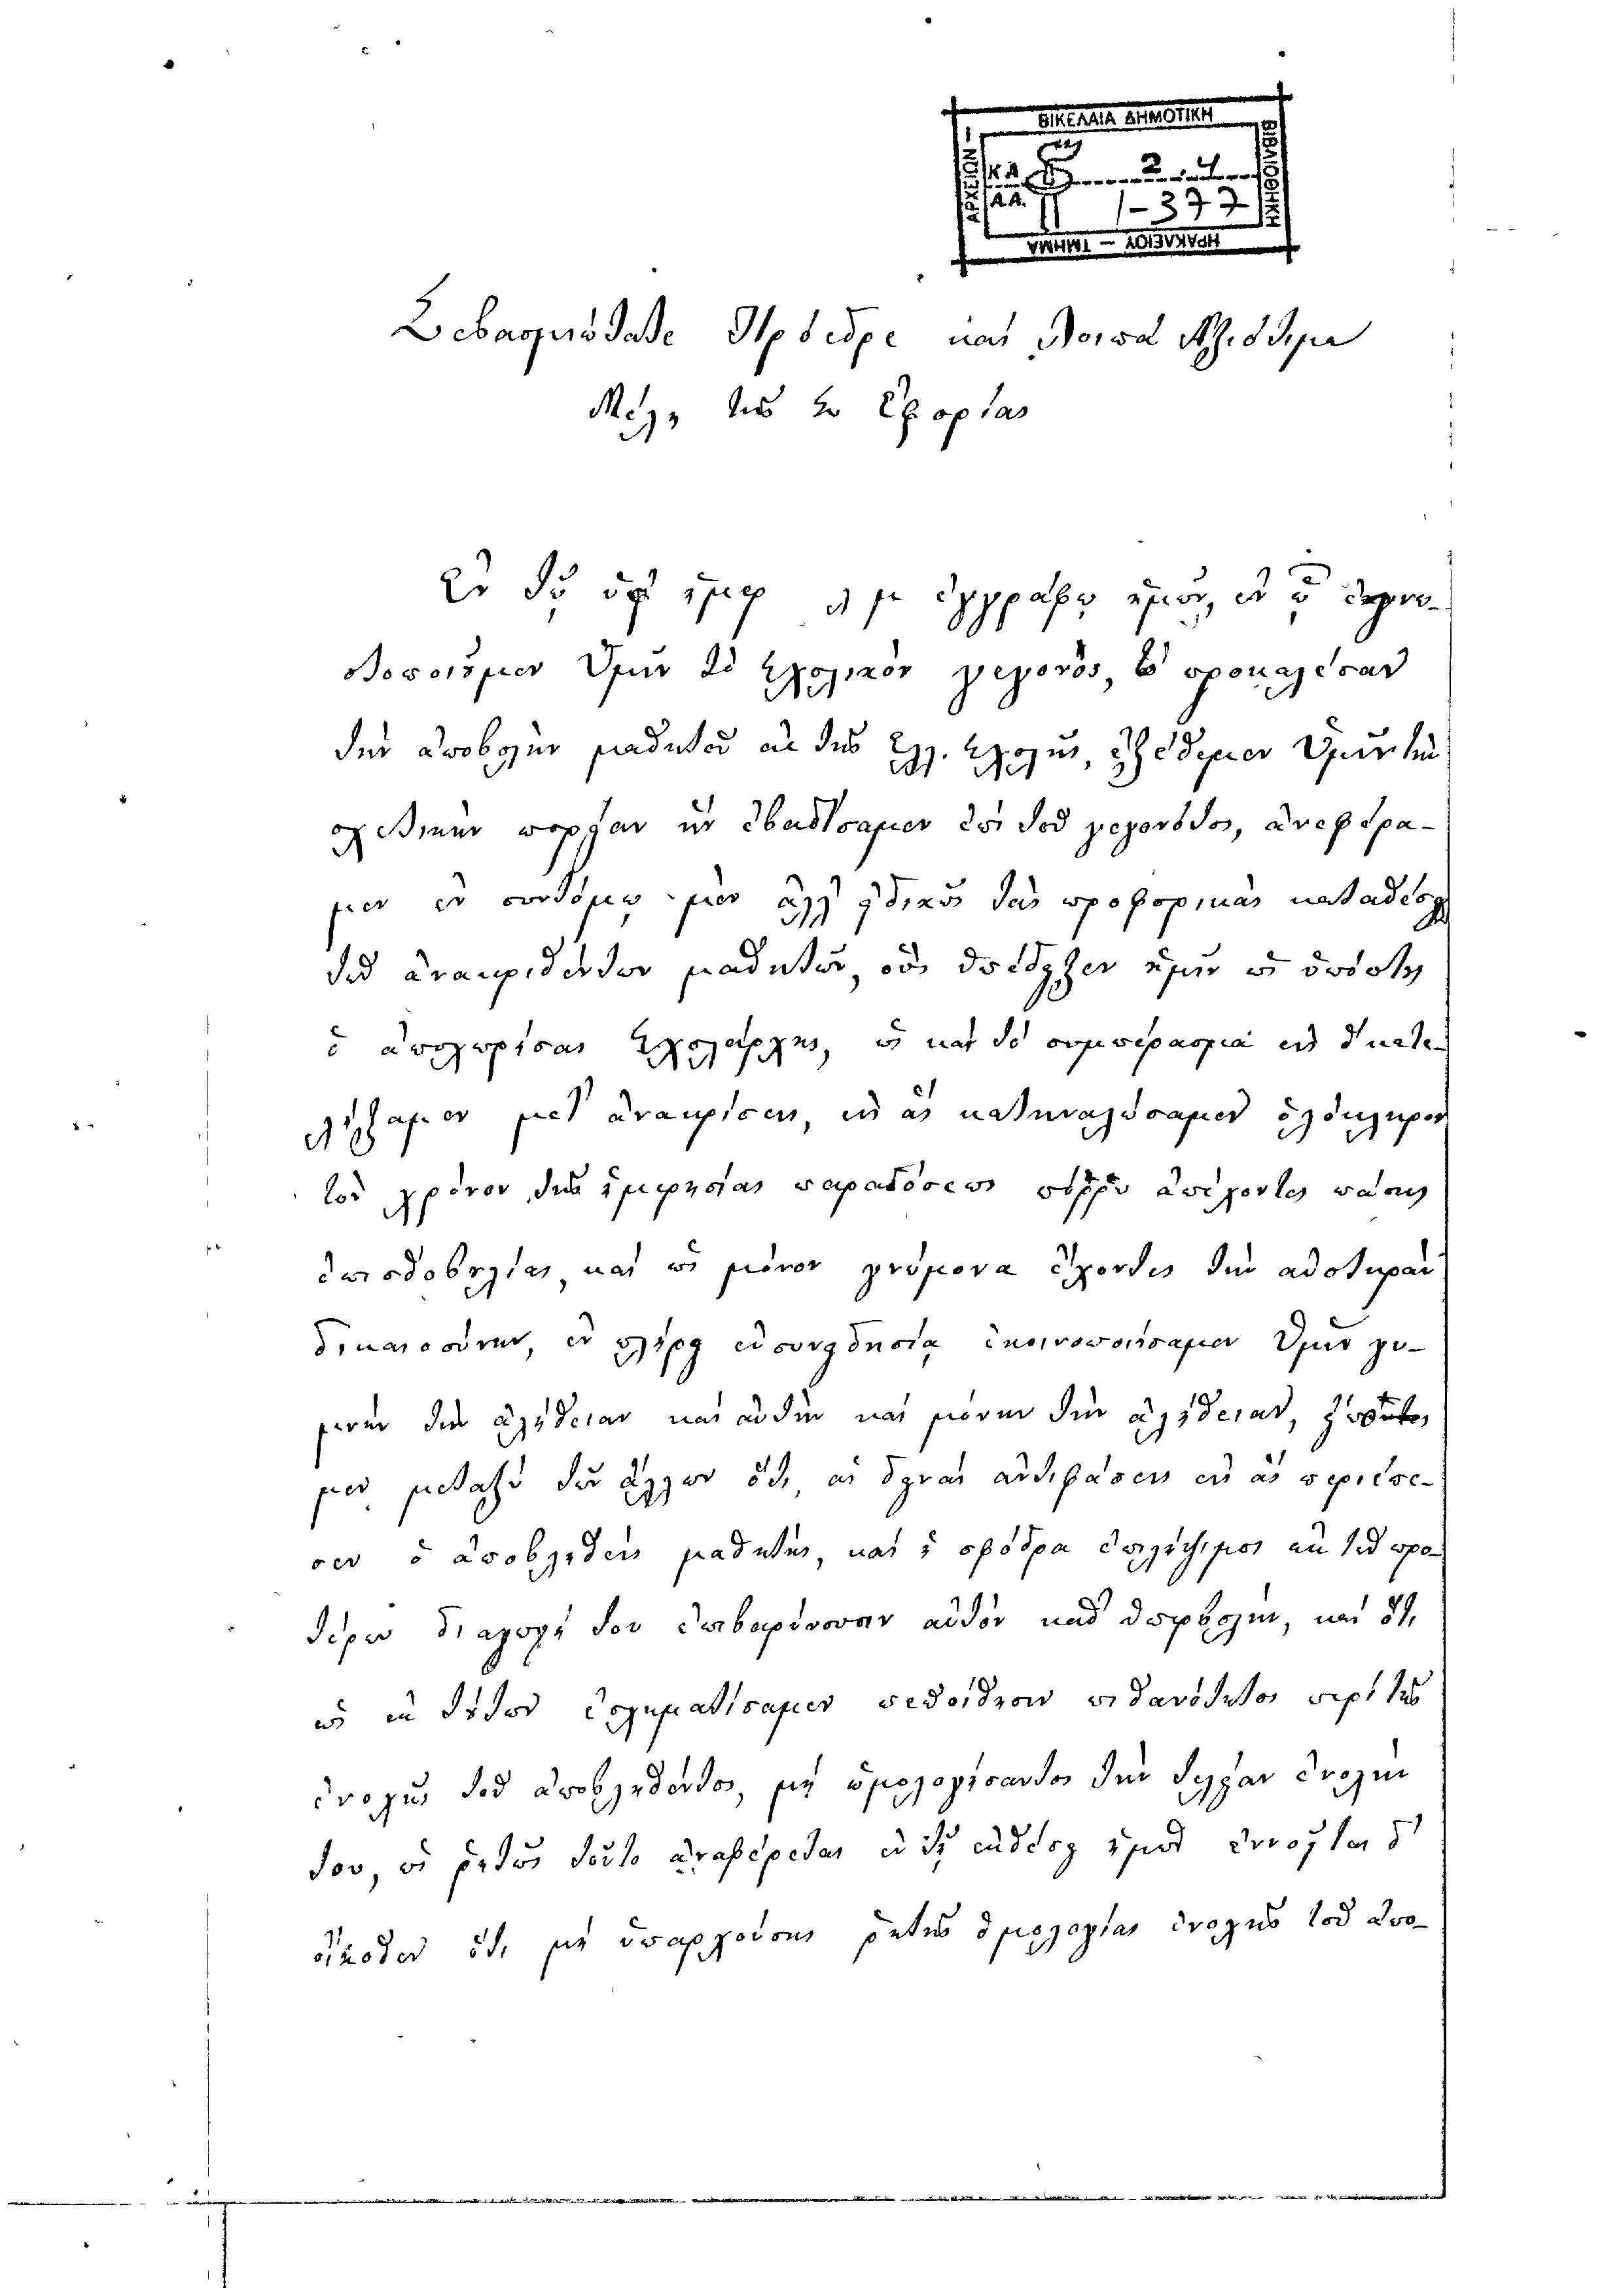 ΒΙΚΕΛΑΙΑ ΔΗΜΟΤΙΚΗ
ΒΙΒΛΙΟΘΗΚΗ
ΗΡΑΚΛΕΙΟΥ – ΤΜΗΜΑ
ΑΡΧΕΙΩΝ
Κ.Δ. 2
Α.Α. 1-377
Σεβασμιώτατε Πρόεδρε καὶ Λοιπὰ Ἀξιότιμα
Μέλη τῆς Σ. Ἐφορίας
Ἐν τῷ ἐγγράφῳ ἡμῶν, ἐν ᾧ ἐγνω-
στοποιοῦμεν Ὑμῖν τὸ Σχολικὸν γεγονὸς, τὸ προκαλέσαν
τὴν ἀποβολὴν μαθητῶν ἐκ τῆς Ἑλλ. Σχολῆς, ἐξεθέμεν Ὑμῖν τὴν
σχετικὴν πορείαν ἣν ἐβαδίσαμεν ἐπὶ τοῦ γεγονότος, ἀνεφέρα-
μεν ἐν συντόμῳ μὲν ἀλλ' εἰδικῶς τὰς προφορικὰς καταθέσεις
τῶν ἀνακριθέντων μαθητῶν, οὓς ὑπέδειξεν ἡμῖν ὡς ὑπόπτους
ὁ ἀποχωρήσας Σχολάρχης, ὡς καὶ τὸ συμπέρασμα εἰς ὃ κατε-
λήξαμεν μετ' ἀνακρίσεις, εἰς ἃς κατηναλώσαμεν ὁλόκληρον
τὸν χρόνον τῆς ἡμερησίας παραδόσεως πόρρω ἀπέχοντες πάσης
ἐμπαθοβολίας, καὶ ὡς μόνον γνώμονα ἔχοντες τὴν αὐστηρὰν
δικαιοσύνην, ἐν πλήρει εὐσυνειδησίᾳ ἐκοινοποιήσαμεν Ὑμῖν γυ-
μνὴν τὴν ἀλήθειαν καὶ αὐτὴν καὶ μόνην τὴν ἀλήθειαν,
μεν μεταξὺ τῶν ἄλλων ὅτι αἱ δειναὶ ἀντιφάσεις εἰς ἃς περιέπε-
σεν ὁ ἀποβληθεὶς μαθητὴς, καὶ ἡ σφόδρα ἐπιλήψιμος ἐκ τῶν προ-
τέρων διαγωγή του ἐπεβαρύνουν αὐτὸν καθ' ὑπερβολὴν, καὶ ὅτι
ὡς ἐκ τούτων ἐσχηματίσαμεν πεποίθησιν πιθανότητος περὶ τῆς
ἐνοχῆς τοῦ ἀποβληθέντος, μὴ ὁμολογήσαντος τὴν τελείαν ἐνοχήν
του, ὡς ῥητῶς τοῦτο ἀναφέρεται ἐν τῇ ἐκθέσει ἡμῶν ἐννοεῖται δ'
οἴκοθεν ὅτι μὴ ὑπαρχούσης ῥητῆς ὁμολογίας ἐνοχῆς τοῦ ἀπο-